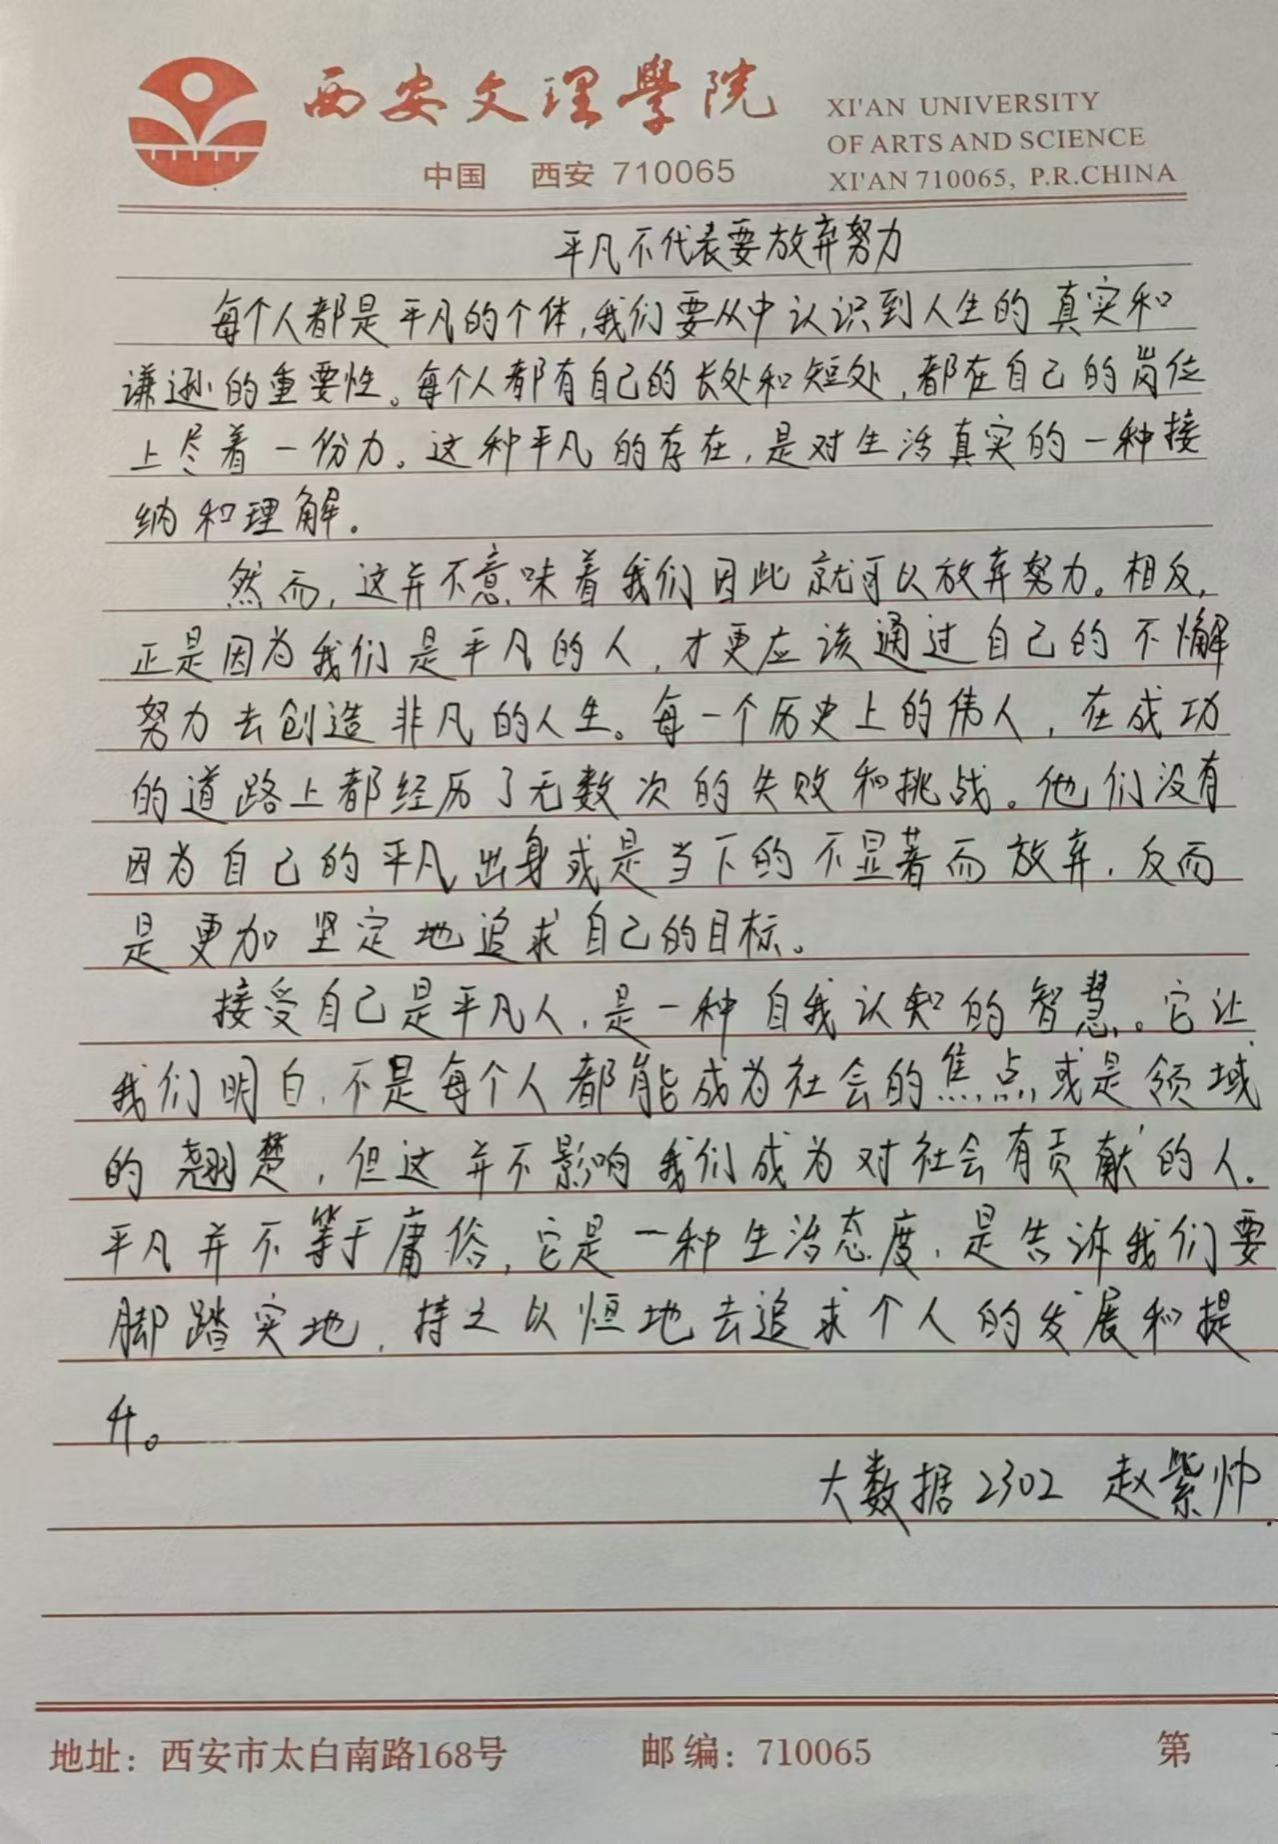 西安文理學院
中国 西安 710065
XI'AN UNIVERSITY
OF ARTS AND SCIENCE
XI'AN 710065, P.R.CHINA
平凡不代表要放弃努力
每个人都是平凡的个体,我们要从中认识到人生的真实和
谦逊的重要性。每个人都有自己的长处和短处,都在自己的岗位
上尽着一份力。这种平凡的存在,是对生活真实的一种接
纳和理解。
然而,这并不意味着我们因此就可以放弃努力。相反,
正是因为我们是平凡的人,才更应该通过自己的不懈
努力去创造非凡的人生。每一个历史上的伟人,在成功
的道路上都经历了无数次的失败和挑战。他们没有
因为自己的平凡出身或是当下的不显著而放弃,反而
是更加坚定地追求自己的目标。
接受自己是平凡人,是一种自我认知的智慧。它让
我们明白,不是每个人都能成为社会的焦点或是领域
的翘楚,但这并不影响我们成为对社会有贡献的人。
平凡并不等于庸俗,它是一种生活态度,是告诉我们要
脚踏实地,持之以恒地去追求个人的发展和提
升。
大数据2302 赵紫帅
地址：西安市太白南路168号 邮编：710065 第